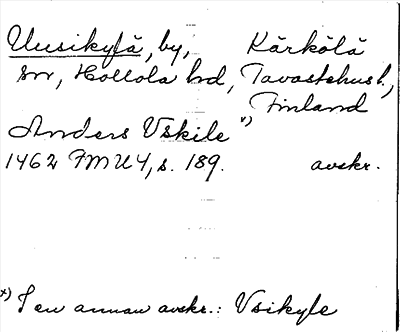 Uusikylä, by, Kärkölä
sn, Hollola hd, Tavastehus l.,
Finland
Anders Vskile x)
1462 FMU 4, s. 189. avskr.
x) I en annan avskr.: Vsikyle